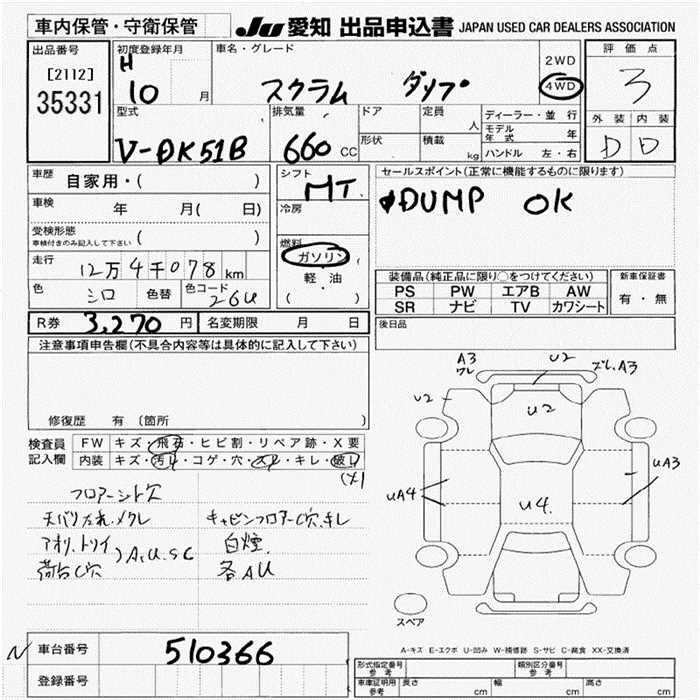 車内保管・守衛保管
JU 愛知 出品申込書 JAPAN USED CAR DEALERS ASSOCIATION
出品番号
[2112]
35331
初度登録年月
H
10 月
車名・グレード
スクラム ダンプ
2WD
4WD
評価点
3
外装 内装
D D
型式
V-DK51B
排気量
660 CC
ドア
形状
定員
人
積載
kg
ディーラー・並行
モデル年式 年
ハンドル 左・右
車歴 自家用・( )
車検 年 月( 日)
受検形態
車検付きのみ記入して下さい ( )
走行 12万4千078 km
色 シロ 色替 色コード 26U
シフト
MT
冷房
燃料
ガソリン
軽・油
( )
セールスポイント(正常に機能するものに限ります)
DUMP OK
装備品(純正品に限り○をつけてください)
PS PW エアB AW
SR ナビ TV カワシート
新車保証書
有・無
R券 3,270 円 名変期限 月 日
後日品
注意事項申告欄(不具合内容等は具体的に記入して下さい)
修復歴 有(箇所 )
検査員記入欄
FW キズ・飛石・ヒビ割・リペア跡・X要
内装 キズ・汚れ・コゲ・穴・スレ・キレ・破レ
フロアーシート欠
天バリ
荷台C穴
A,U,S,C
キャビンフロアーC穴
白煙
各AU
A3
ワレ
U2
ズレ,A3
U2
U2
UA4
U4.
UA3
スペア
A-キズ E-エクボ U-凹み W-補修跡 S-サビ C-腐食 XX-交換済
N 車台番号 510366
登録番号
形式指定番号
参考
類別区分番号
車庫証明用
参考
長さ cm 幅 cm 高さ cm